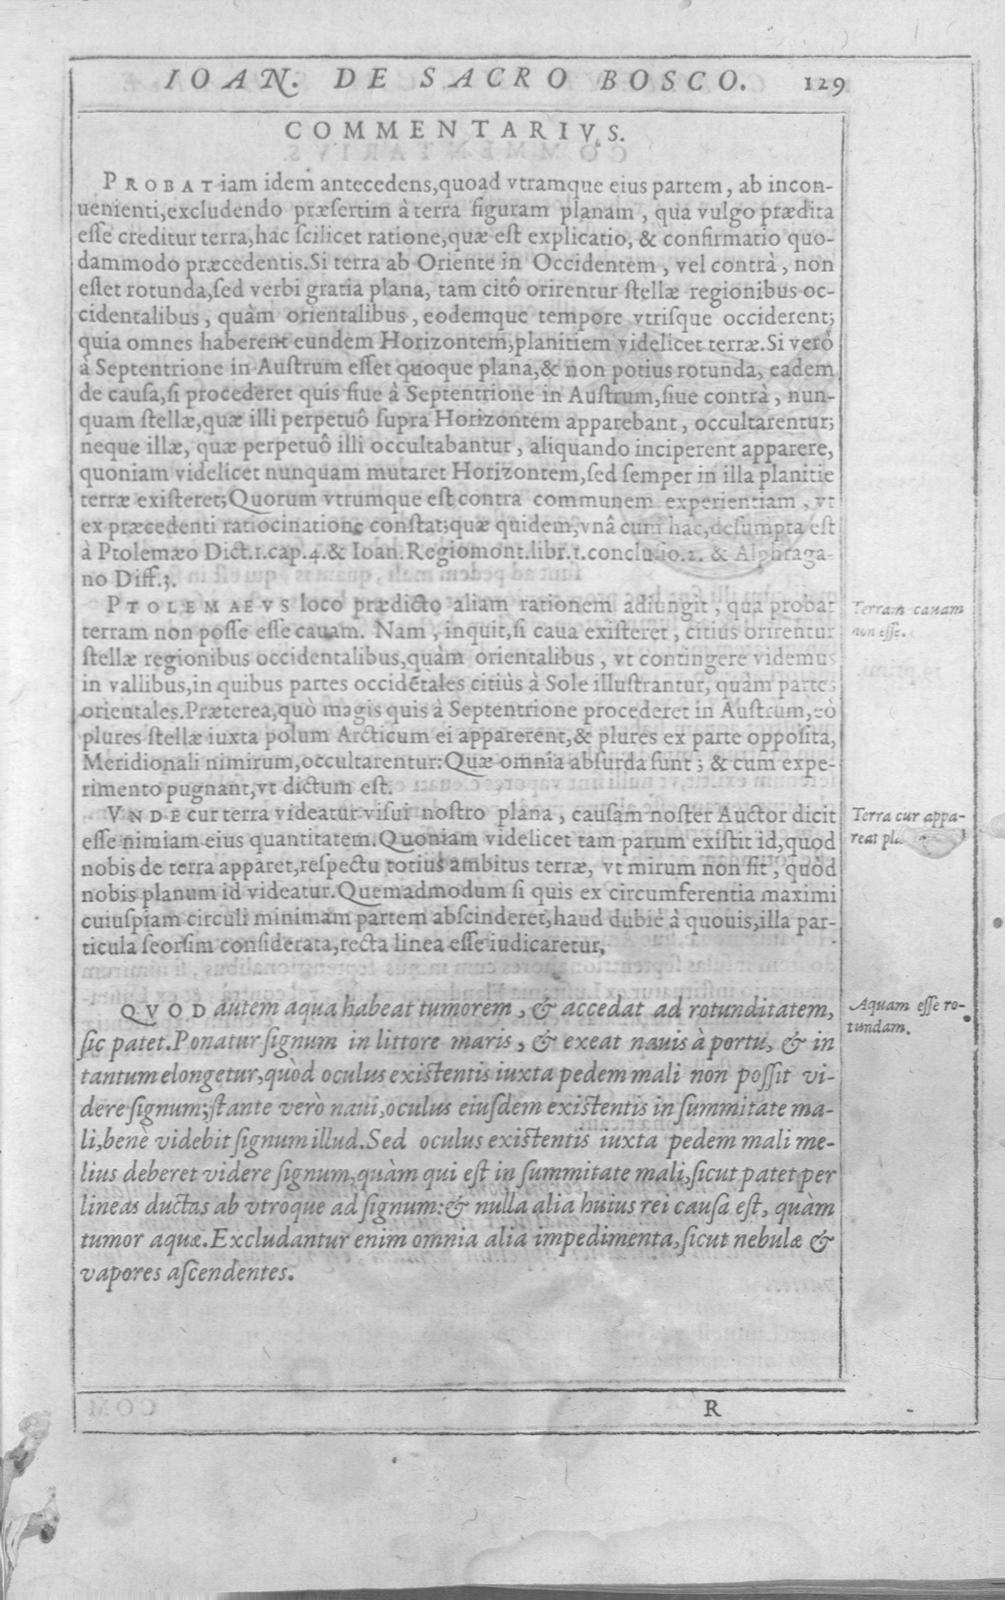 IOAN. DE SACRO BOSCO. 129
COMMENTARIVS.
PROBAT iam idem antecedens, quoad vtramque eius partem, ab incon-
uenienti, excludendo præsertim à terra figuram planam, qua vulgo prædita
esse creditur terra, hac scilicet ratione, quæ est explicatio, & confirmatio quo-
dammodo præcedentis. Si terra ab Oriente in Occidentem, vel contrà, non
esset rotunda, sed verbi gratia plana, tam citô orirentur stellæ regionibus oc-
cidentalibus, quàm orientalibus, eodemque tempore vtrisque occiderent;
quia omnes haberent eundem Horizontem, planitiem videlicet terræ. Si verò
à Septentrione in Austrum esset quoque plana, & non potius rotunda, eadem
de causa, si procederet quis siue à Septentrione in Austrum, siue contrà, nun-
quam stellæ, quæ illi perpetuô supra Horizontem apparebant, occultarentur;
neque illæ, quæ perpetuô illi occultabantur, aliquando inciperent apparere,
quoniam videlicet nunquam mutaret Horizontem, sed semper in illa planitie
terræ existeret; Quorum vtrumque est contra communem experientiam, vt
ex præcedenti ratiocinatione constat; quæ quidem, vnâ cum hac, desumpta est
à Ptolemæo Dict. 1. cap. 4. & Ioan. Regiomont. libr. 1. conclusio. 2. & Alphraga-
no Diff. 3.
PTOLEMAEVS loco prædicto aliam rationem adiungit, qua probat
Terram cauam
terram non posse esse cauam. Nam, inquit, si caua existeret, citius orirentur
non esse.
stellæ regionibus occidentalibus, quàm orientalibus, vt contingere videmus
in vallibus, in quibus partes occidẽtales citiùs à Sole illustrantur, quàm partes
orientales. Præterea, quò magis quis à Septentrione procederet in Austrum, eò
plures stellæ iuxta polum Arcticum ei apparerent, & plures ex parte opposita,
Meridionali nimirum, occultarentur: Quæ omnia absurda sunt; & cum expe-
rimento pugnant, vt dictum est.
VNDE cur terra videatur visui nostro plana, causam noster Auctor dicit
Terra cur appa-
esse nimiam eius quantitatem. Quoniam videlicet tam parum existit id, quod
reat
nobis de terra apparet, respectu totius ambitus terræ, vt mirum non sit, quòd
nobis planum id videatur. Quemadmodum si quis ex circumferentia maximi
cuiuspiam circuli minimam partem abscinderet, haud dubiè à quouis, illa par-
ticula seorsim considerata, recta linea esse iudicaretur,
QVOD autem aqua habeat tumorem, & accedat ad rotunditatem,
Aquam esse ro-
tundam.
sic patet. Ponatur signum in littore maris, & exeat nauis à portu, & in
tantum elongetur, quòd oculus existentis iuxta pedem mali non possit vi-
dere signum; stante verò naui, oculus eiusdem existentis in summitate ma-
li, benè videbit signum illud. Sed oculus existentis iuxta pedem mali me-
lius deberet videre signum, quàm qui est in summitate mali, sicut patet per
lineas ductas ab vtroque ad signum: & nulla alia huius rei causa est, quàm
tumor aquæ. Excludantur enim omnia alia impedimenta, sicut nebulæ &
vapores ascendentes.
R